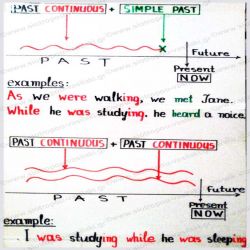 PAST CONTINUOUS + SIMPLE PAST
Future
PAST
Present
NOW
examples:
As we were walking, we met Jane.
While he was studying, he heard a noice.
PAST CONTINUOUS + PAST CONTINUOUS
Future
PAST
Present
NOW
example:
I was studying while he was sleeping